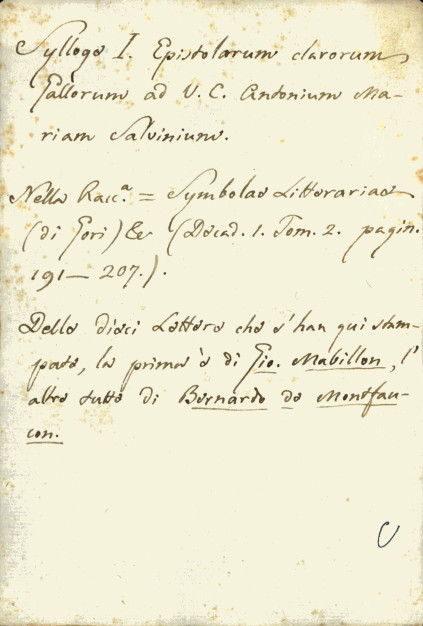 Sylloge I. Epistolarum clarorum
Gallorum ad V. C. Antonium Ma-
riam Salvinium.
Nella Racc.ª = Symbolae Litterariae
(di Gori) &c (Decad. 1. Tom. 2. pagin.
191— 207.).
Delle dieci Lettere che s'han qui stam-
pate, la prima è di Gio. Mabillon, l'
altre tutte di Bernardo de Montfau-
con.